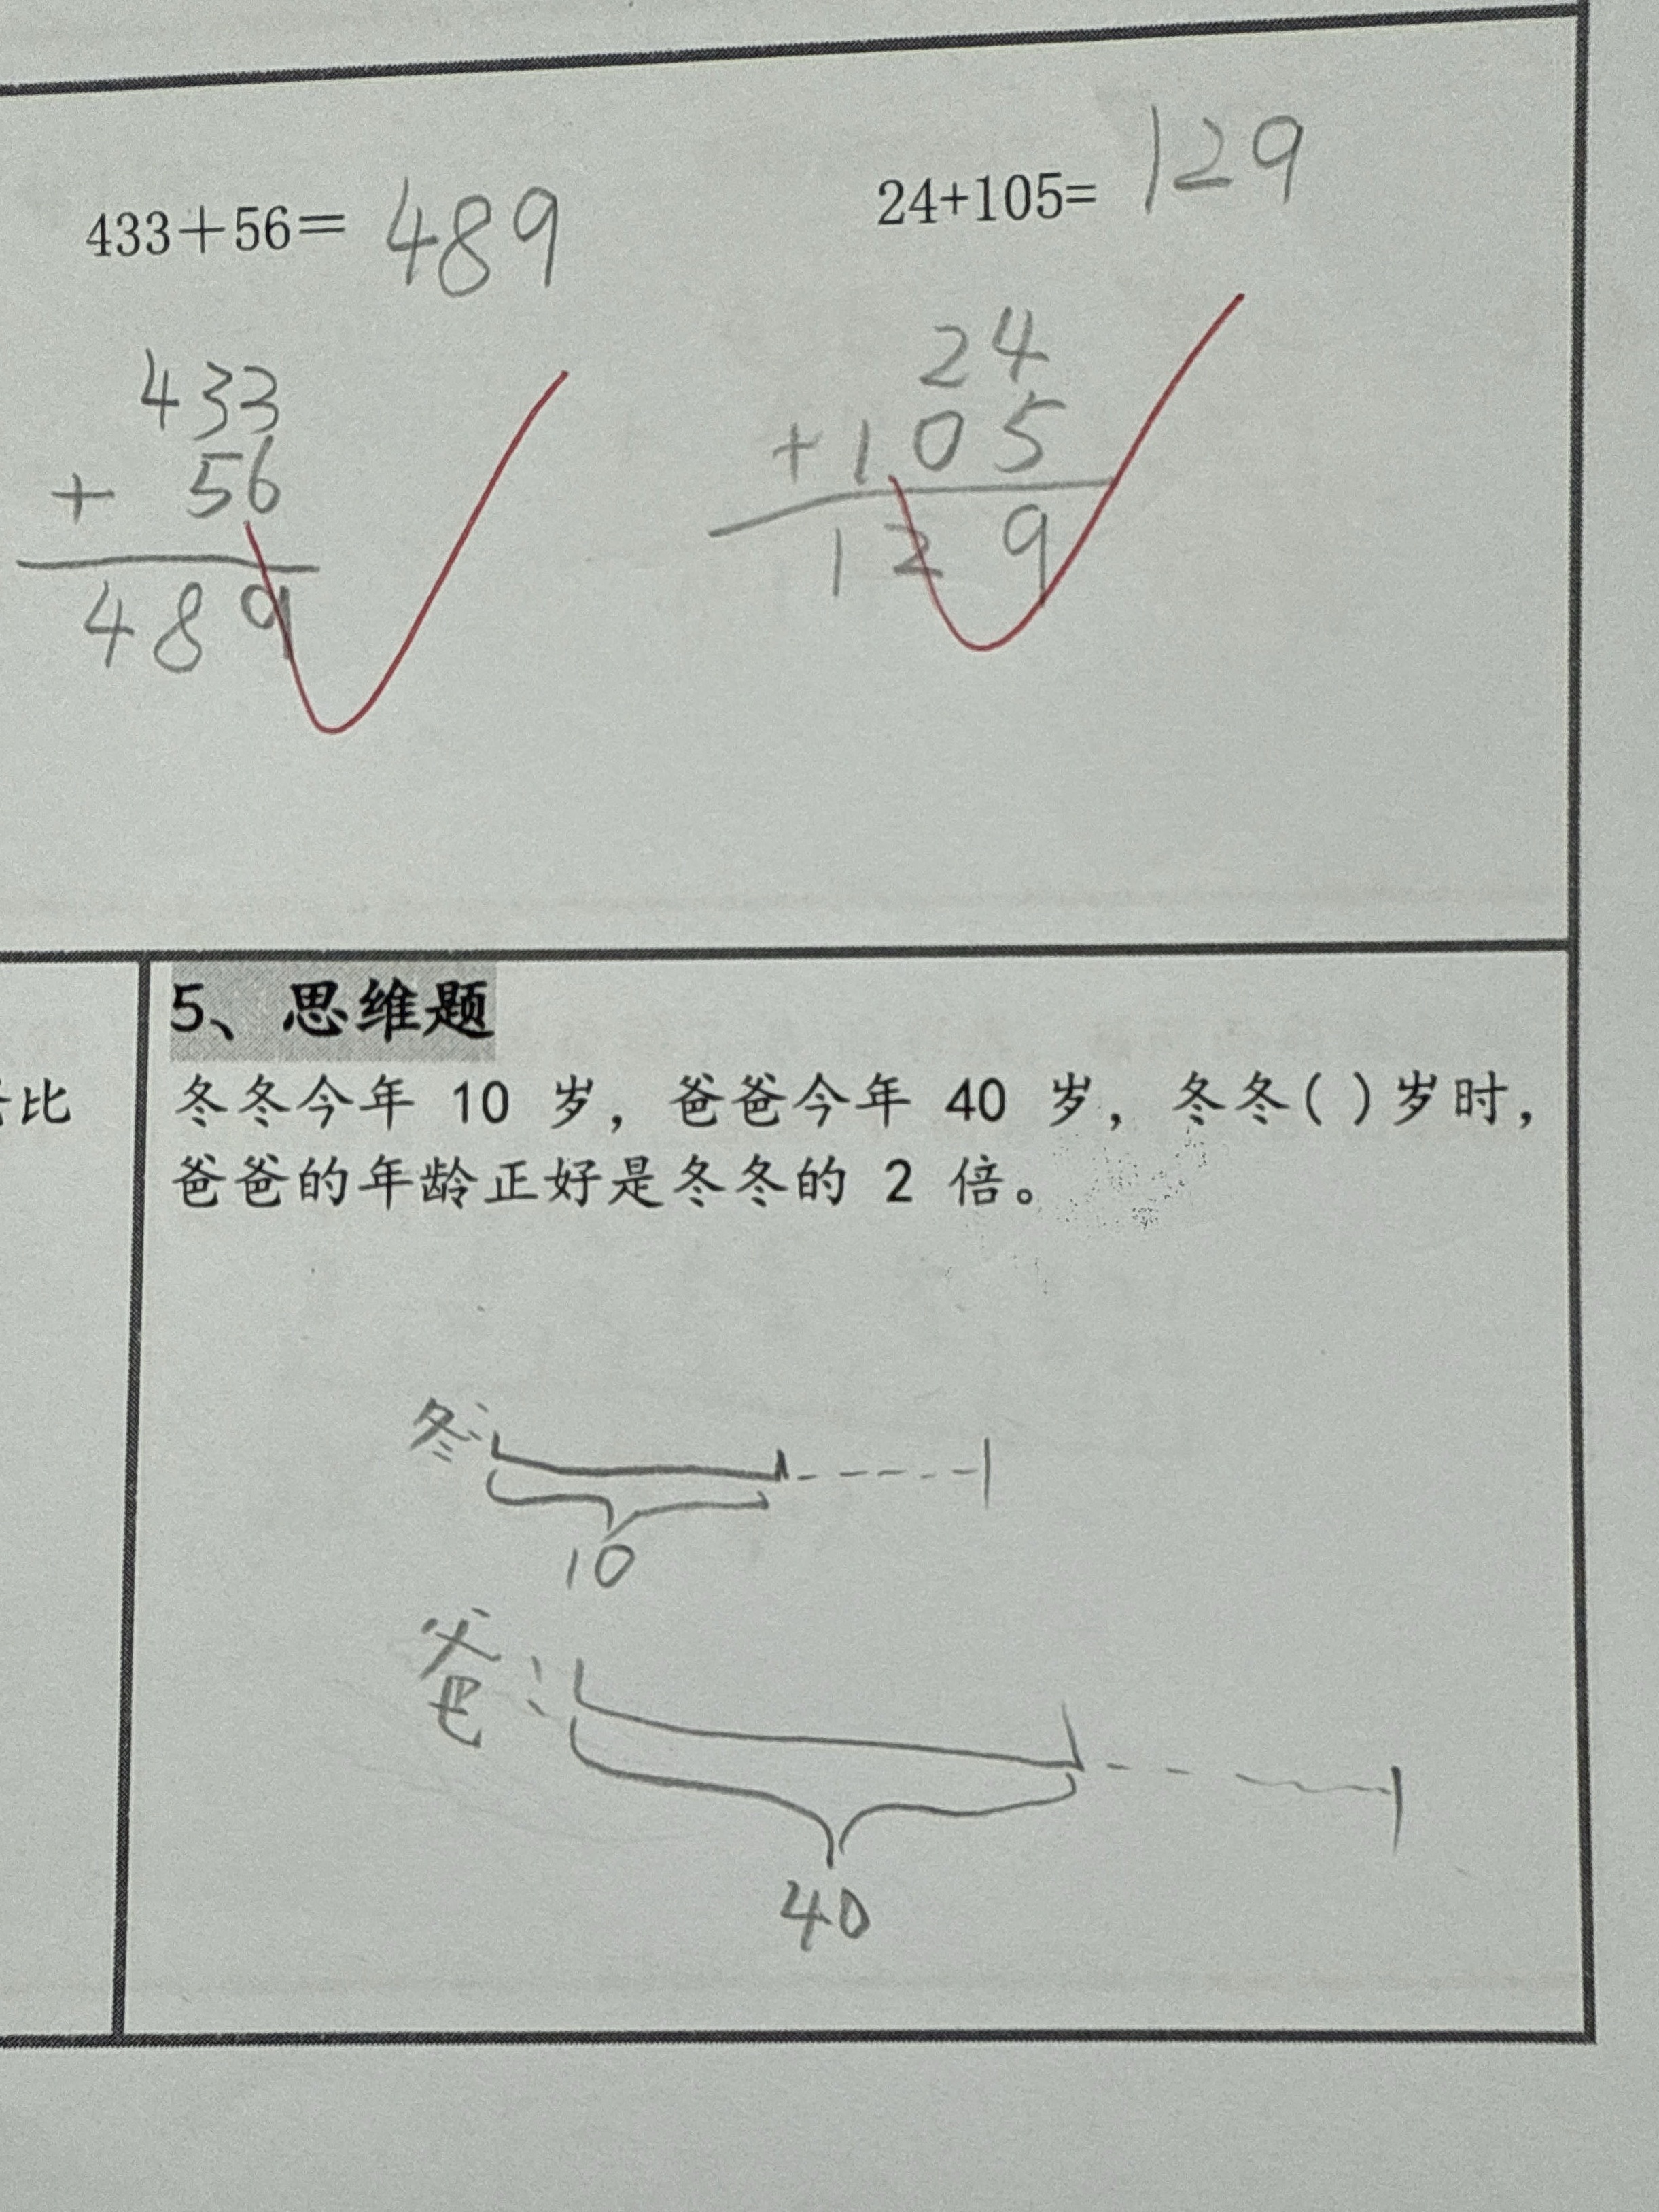 433+56= 489
24+105= 129
433
+ 56
489
24
+105
129
比
5、思维题
冬冬今年 10 岁，爸爸今年 40 岁，冬冬( )岁时，
爸爸的年龄正好是冬冬的 2 倍。
冬:
10
爸:
40